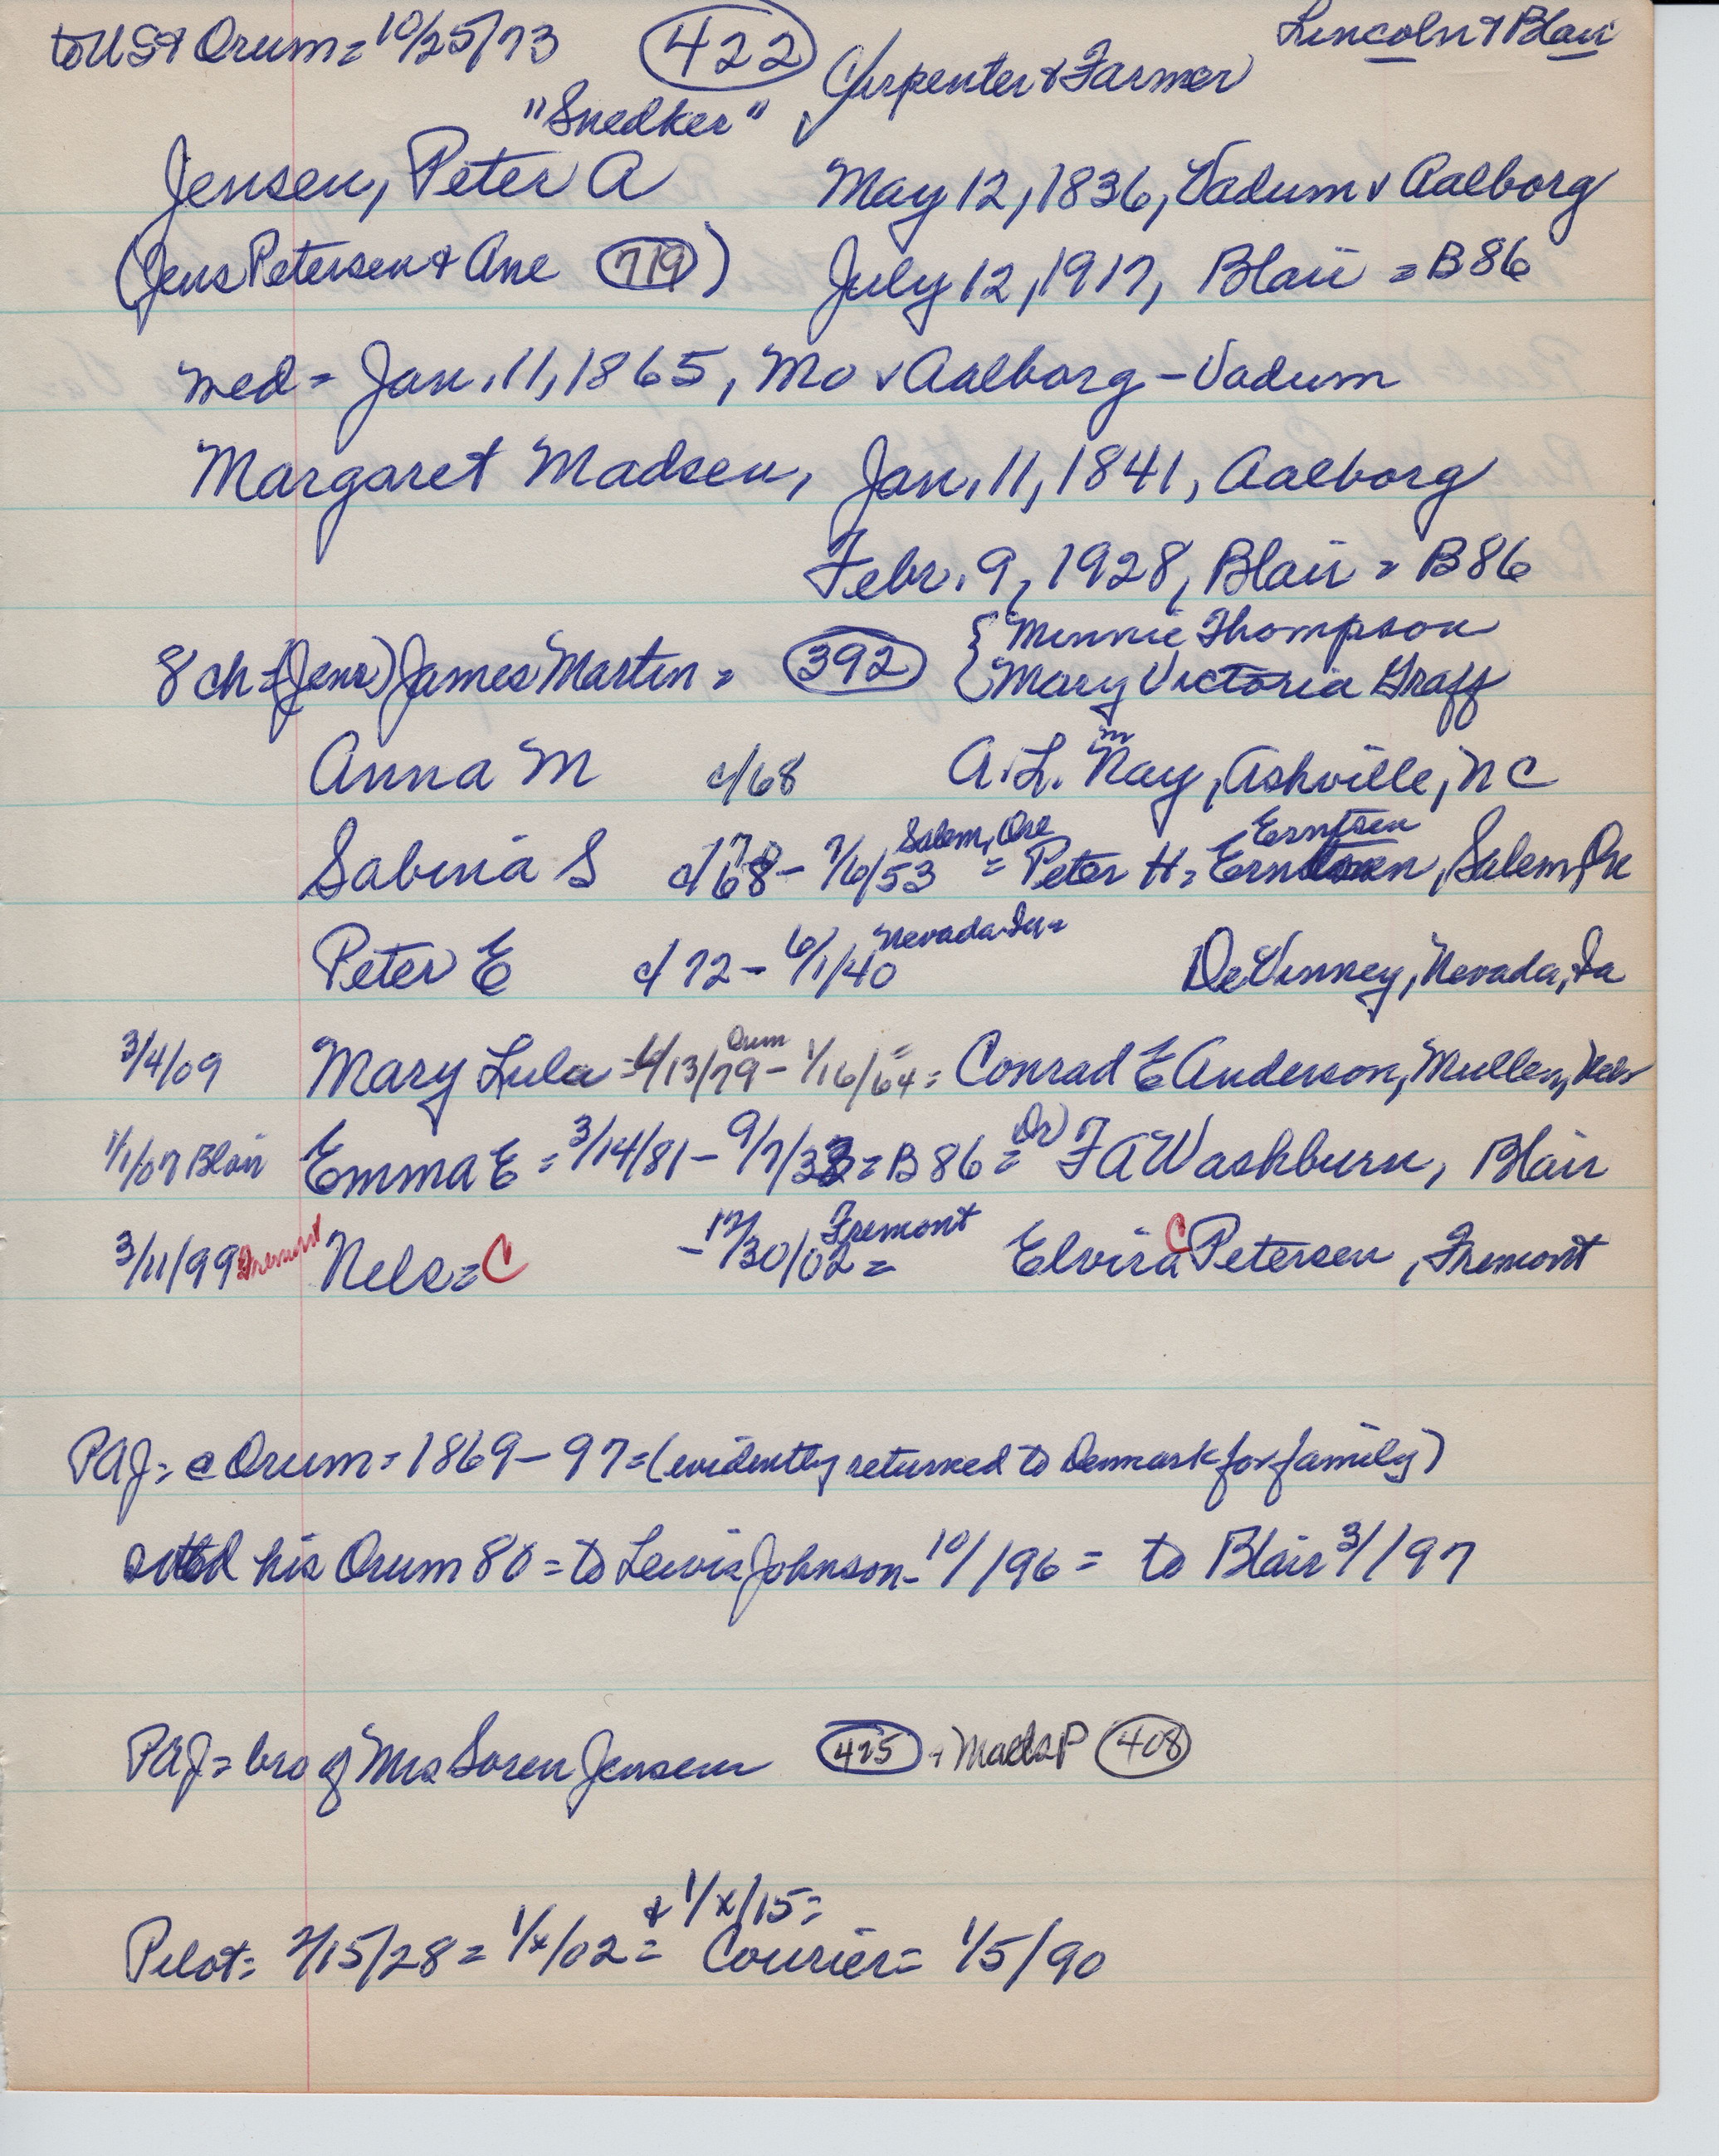 to US & Orum = 10/25/73 422 Lincoln & Blair
"Snedker" Carpenter & Farmer
Jensen, Peter A May 12, 1836, Vadum v Aalborg
(Jens Petersen & Ane 719) July 12, 1917, Blair = B86
med = Jan. 11, 1865, Mo v Aalborg - Vadum
Margaret Madsen, Jan. 11, 1841, Aalborg
Febr. 9, 1928, Blair = B86
8 ch = (Jens) James Martin = 392 { Minnie Thompson
Mary Victoria Graff
Anna M c/68 A. L. Nay, Ashville, N C
Sabina S - 7/6/53 Salem, Ore = Peter H = Erntsen, Salem, Ore
Peter E c/72 - 6/1/40 Nevada Ia = DeVinney, Nevada, Ia
3/4/09 Mary Lula = 6/13/79 Orum - 1/16/64 = Conrad E Anderson, Mullen, Nebr
1/1/07 Blair Emma E = 3/14/81 - 9/7/33 = B86 = (Dr) F A Washburn, Blair
3/11/99 Fremont Nels = C - 12/30/02 = Fremont Elvira C Petersen, Fremont
PAJ = c Orum = 1869 - 97 = (evidently returned to Denmark for family)
sold his Orum 80 = to Lewis Johnson - 10/ /96 = to Blair 3/ /97
PAJ = bro of Mrs Soren Jensen 425 + Mads P 408
& 1/x/15 =
Pilot = 2/15/28 = 1/x/02 = Courier = 1/5/90